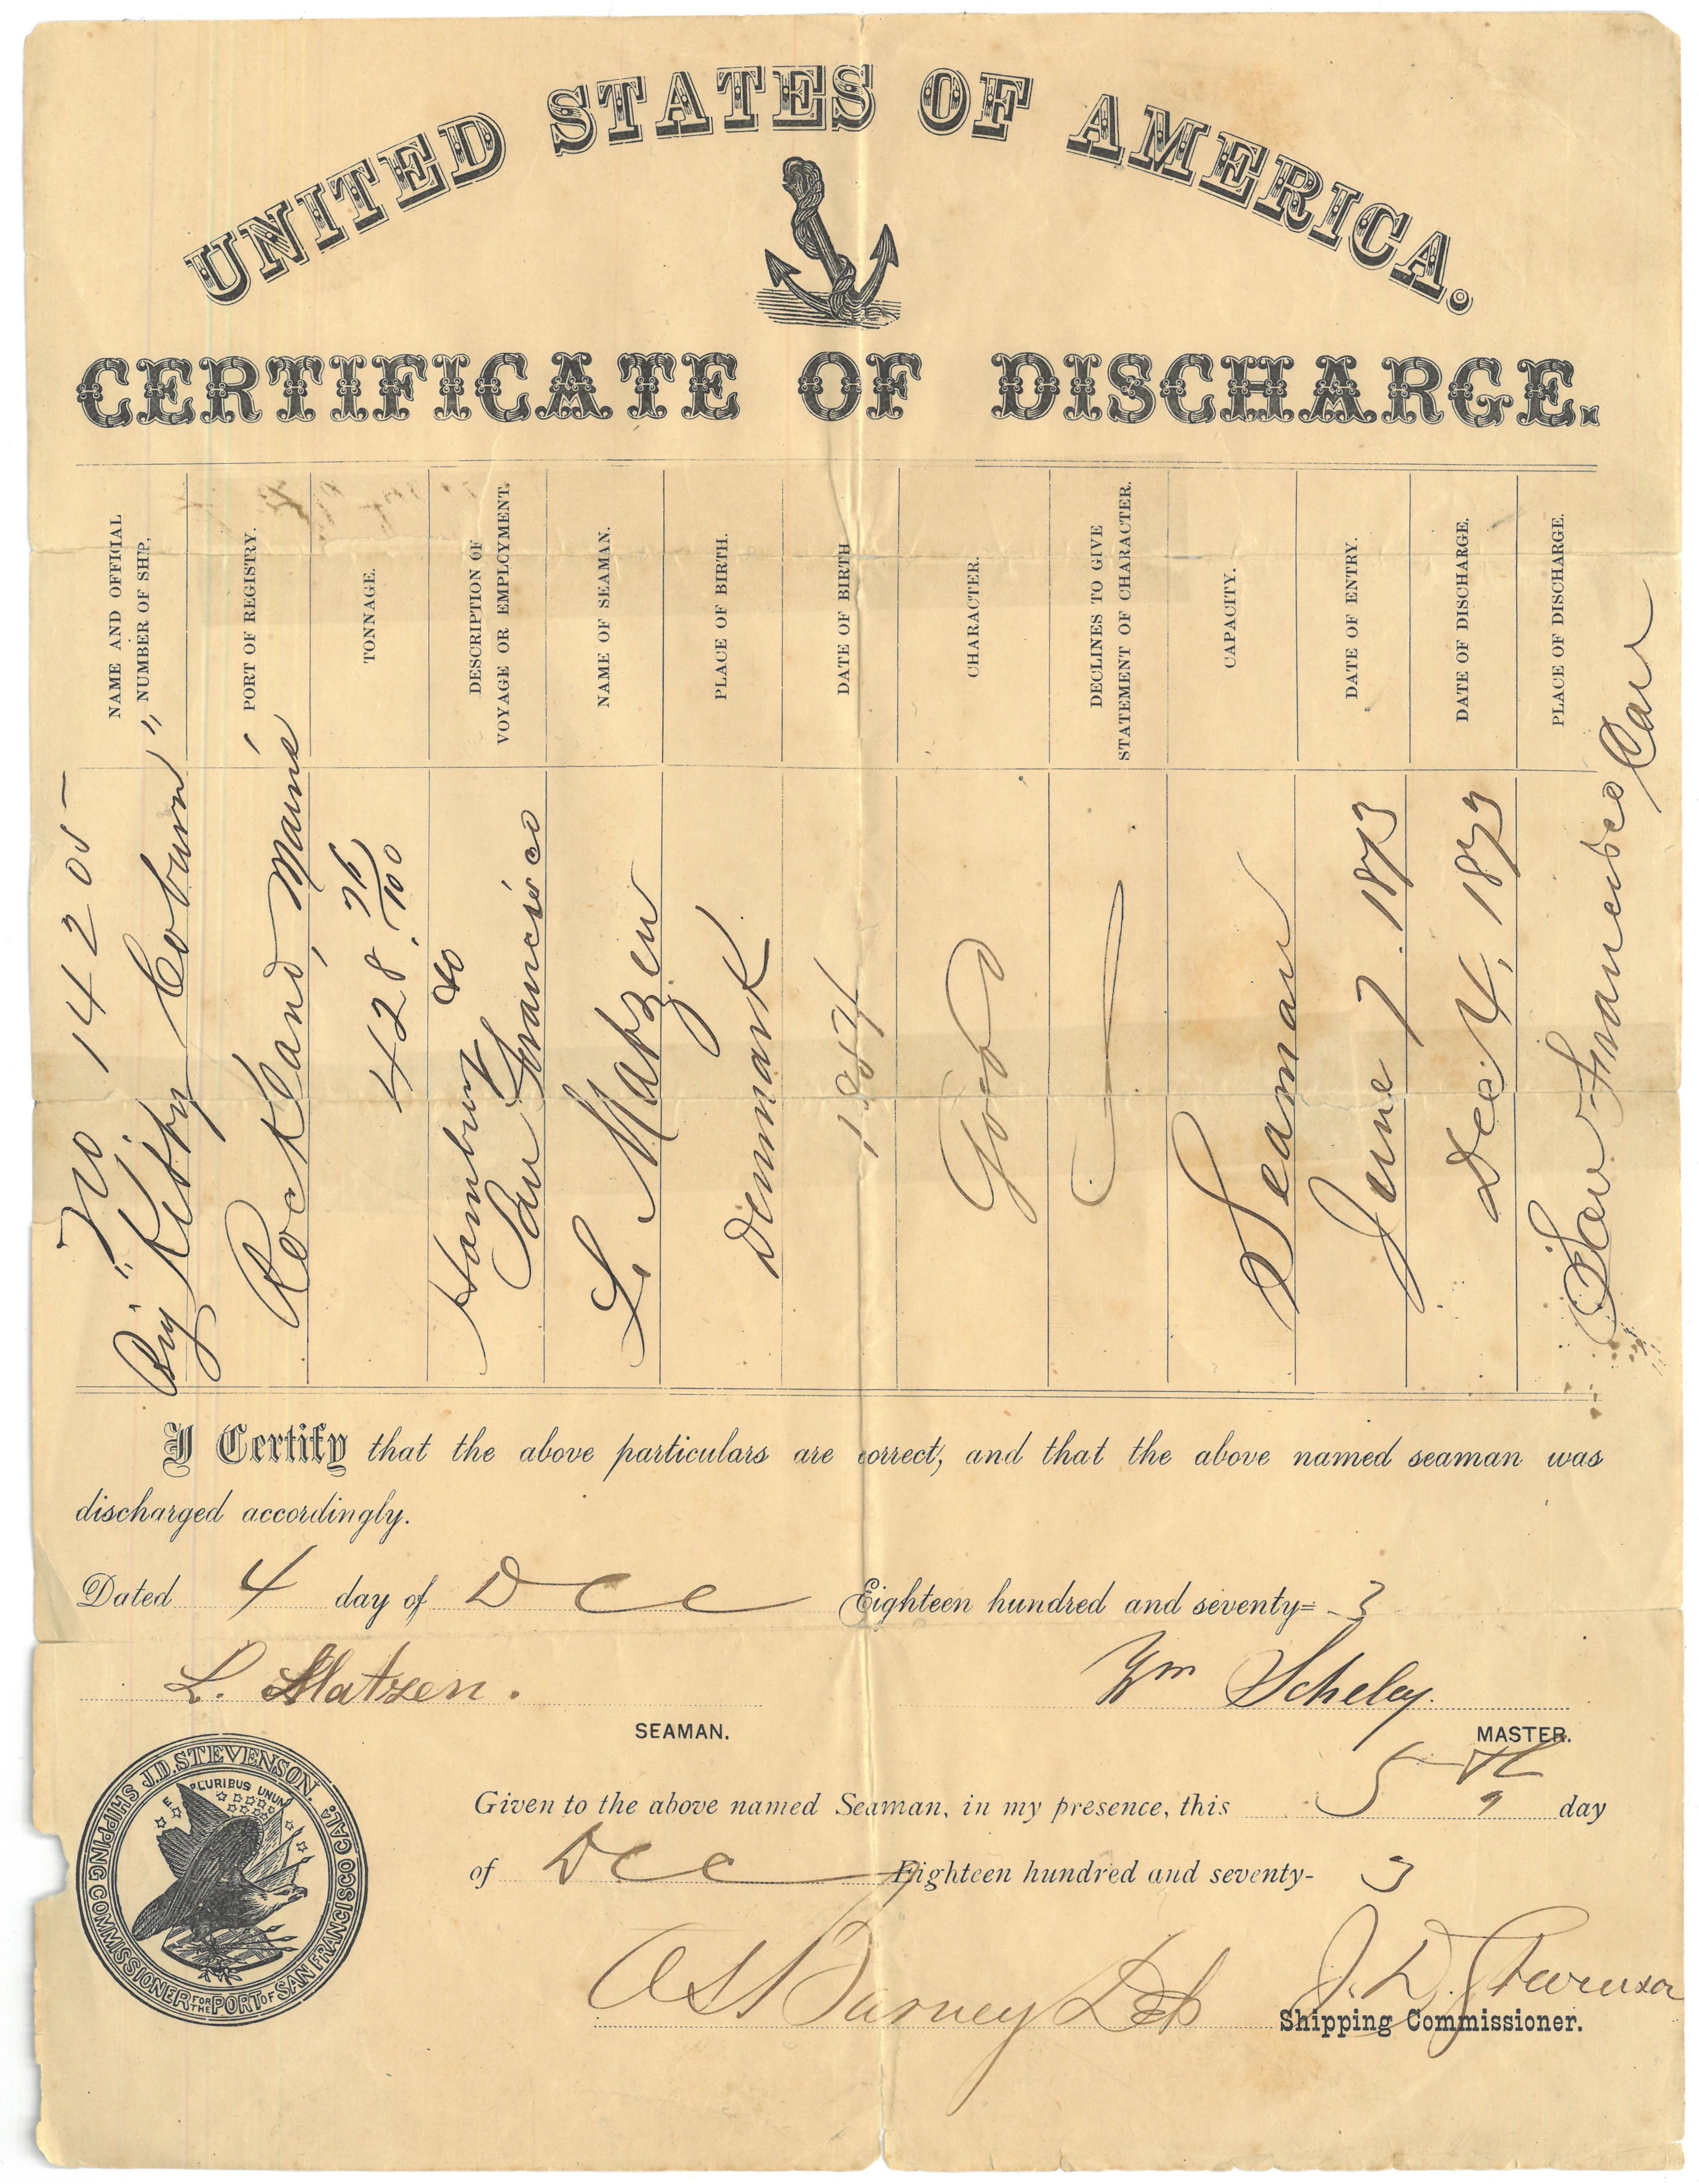 UNITED STATES OF AMERICA.
CERTIFICATE OF DISCHARGE.
NAME AND OFFICIAL
NUMBER OF SHIP.
No 14205
Brig "Kitty Coburn"
PORT OF REGISTRY.
Rockland, Maine
TONNAGE.
428. 76/100
DESCRIPTION OF
VOYAGE OR EMPLOYMENT.
Hamburg to
San Francisco
NAME OF SEAMAN.
L. Matzen
PLACE OF BIRTH.
Denmark
DATE OF BIRTH
1854
CHARACTER.
Good
DECLINES TO GIVE
STATEMENT OF CHARACTER.
CAPACITY.
Seaman
DATE OF ENTRY.
June 7. 1873
DATE OF DISCHARGE.
Dec 4, 1873
PLACE OF DISCHARGE.
San Francisco Cal
I Certify that the above particulars are correct, and that the above named seaman was
discharged accordingly.
Dated 4 day of Dec Eighteen hundred and seventy=3
L. Matzen.
SEAMAN.
Wm Scheley.
MASTER.
J.D. STEVENSON.
SHIPPING COMMISSIONER FOR THE PORT OF SAN FRANCISCO CAL.
E PLURIBUS UNUM
Given to the above named Seaman, in my presence, this 5th day
of Dec Eighteen hundred and seventy-3
Barney Dep
J. D. Stevenson
Shipping Commissioner.